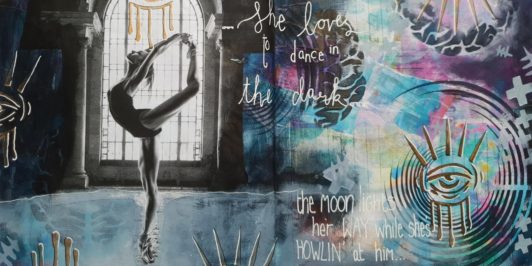 ...She loves
to dance in
the dark...
the MOON lights
her WAY while she's
HOWLIN' at him...